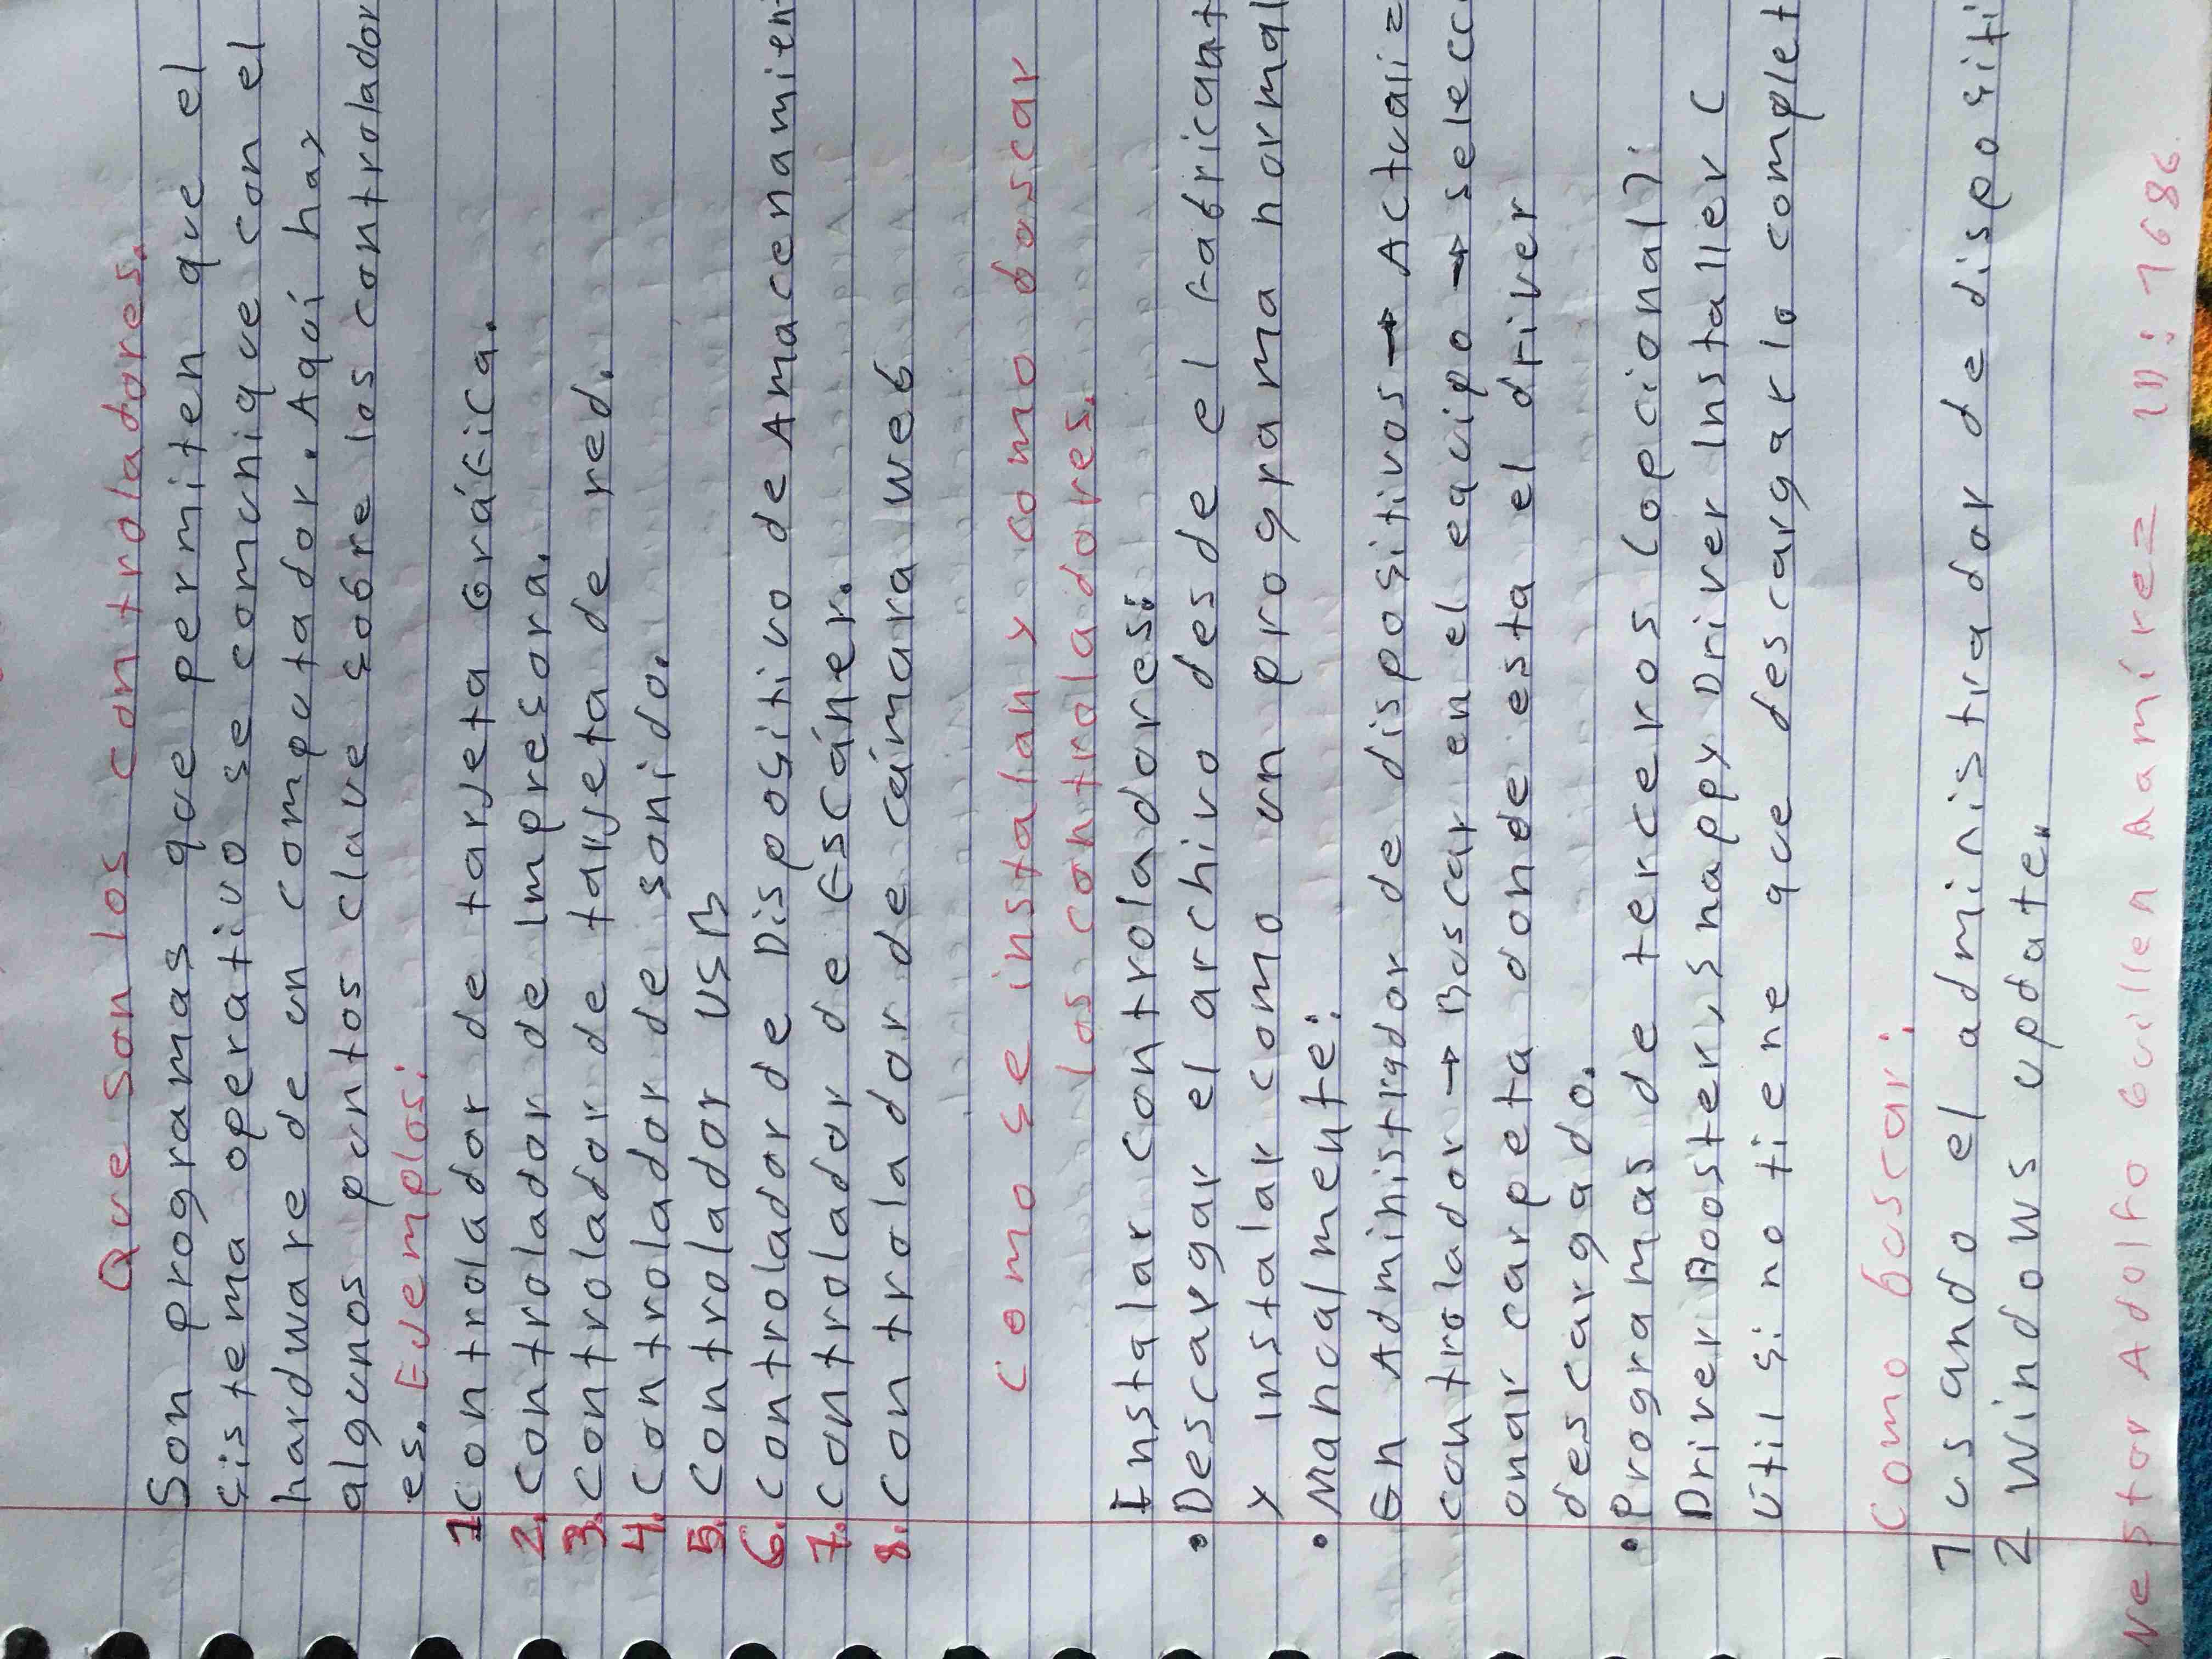 Que son los controladores.
Son programas que permiten que el
sistema operativo se comunique con el
hardware de un computador. Aquí hay
algunos puntos clave sobre los controlador
es. Ejemplos:
1 controlador de tarjeta Gráfica.
2. controlador de Impresora.
3. controlador de tarjeta de red.
4. controlador de sonido.
5. controlador USB
6. controlador de Dispositivo de Amacenamien
7. controlador de Escáner.
8. controlador de cámara web
Como se instalan y como buscar
los controladores.
Instalar controladores:
• Descargar el archivo desde el fabricant
y instalar como un programa normal
• Manualmente:
En Administrador de dispositivos → Actualiz
controlador → Buscar en el equipo → selecc
onar carpeta donde esta el driver
descargado.
• Programas de terceros (opcional):
Driver Booster, snappy Driver Installer (
Útil si no tiene que descargarlo complet
Como buscar:
1 usando el administrador de dispositi
2 Windows update.
Nestor Adolfo Guillen Ramírez ID: 1686